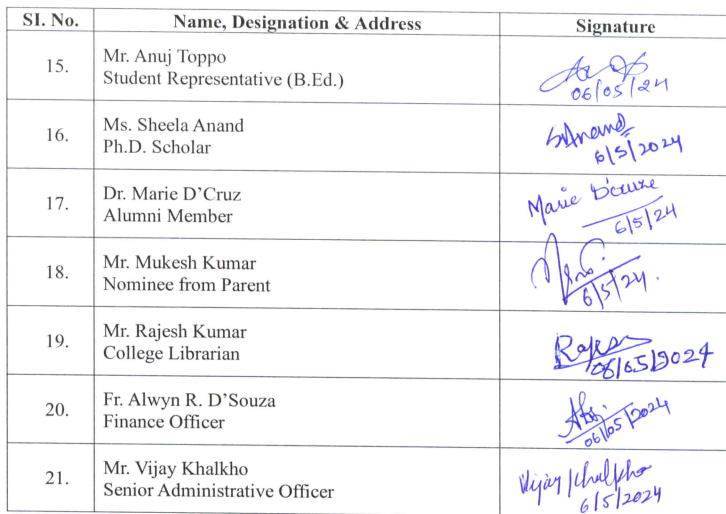 SI. No. Name, Designation & Address Signature
15. Mr. Anuj Toppo
Student Representative (B.Ed.)
06/05/24
16. Ms. Sheela Anand
Ph.D. Scholar
SAnand
6/5/2024
17. Dr. Marie D'Cruz
Alumni Member
Marie D'cruze
6/5/24
18. Mr. Mukesh Kumar
Nominee from Parent
6/5/24.
19. Mr. Rajesh Kumar
College Librarian
Rajesh
06/05/2024
20. Fr. Alwyn R. D'Souza
Finance Officer
06/05/2024
21. Mr. Vijay Khalkho
Senior Administrative Officer
Vijay Khalkho
6/5/2024